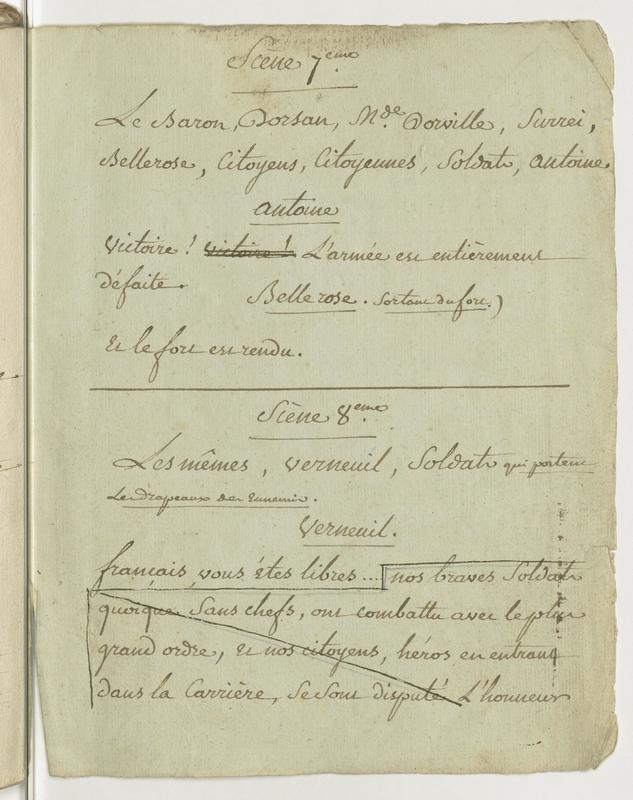 Scène 7ème.
Le Baron, Dorsan, Mde. Dorville, Surrei,
Bellerose, Citoyens, Citoyennes, Soldats, antoine.
antoine
Victoire ! Victoire ! L'armée est entièrement
défaite.
Bellerose. Sortant du fort.)
Et le fort est rendu.
Scène 8ème.
Les mêmes, Verneuil, Soldats qui portent
Les drapeaux des Ennemis.
Verneuil.
français, vous êtes libres .... nos braves Soldats
quoique Sans chefs, ont combattu avec le plus
grand ordre, et nos citoyens, héros en entrant
dans la Carrière, se sont disputé L'honneur